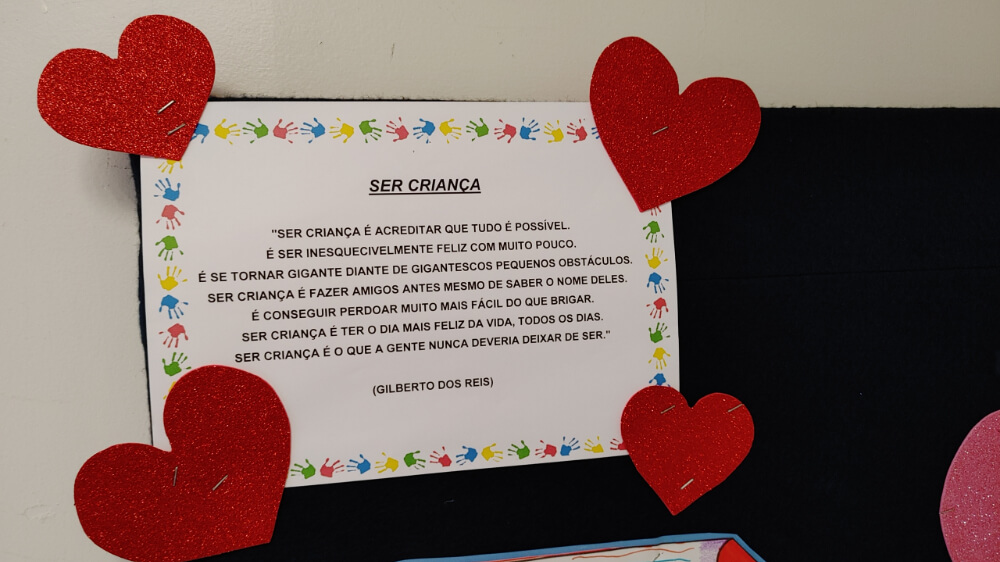 SER CRIANÇA
"SER CRIANÇA É ACREDITAR QUE TUDO É POSSÍVEL.
É SER INESQUECIVELMENTE FELIZ COM MUITO POUCO.
É SE TORNAR GIGANTE DIANTE DE GIGANTESCOS PEQUENOS OBSTÁCULOS.
SER CRIANÇA É FAZER AMIGOS ANTES MESMO DE SABER O NOME DELES.
É CONSEGUIR PERDOAR MUITO MAIS FÁCIL DO QUE BRIGAR.
SER CRIANÇA É TER O DIA MAIS FELIZ DA VIDA, TODOS OS DIAS.
SER CRIANÇA É O QUE A GENTE NUNCA DEVERIA DEIXAR DE SER."
(GILBERTO DOS REIS)